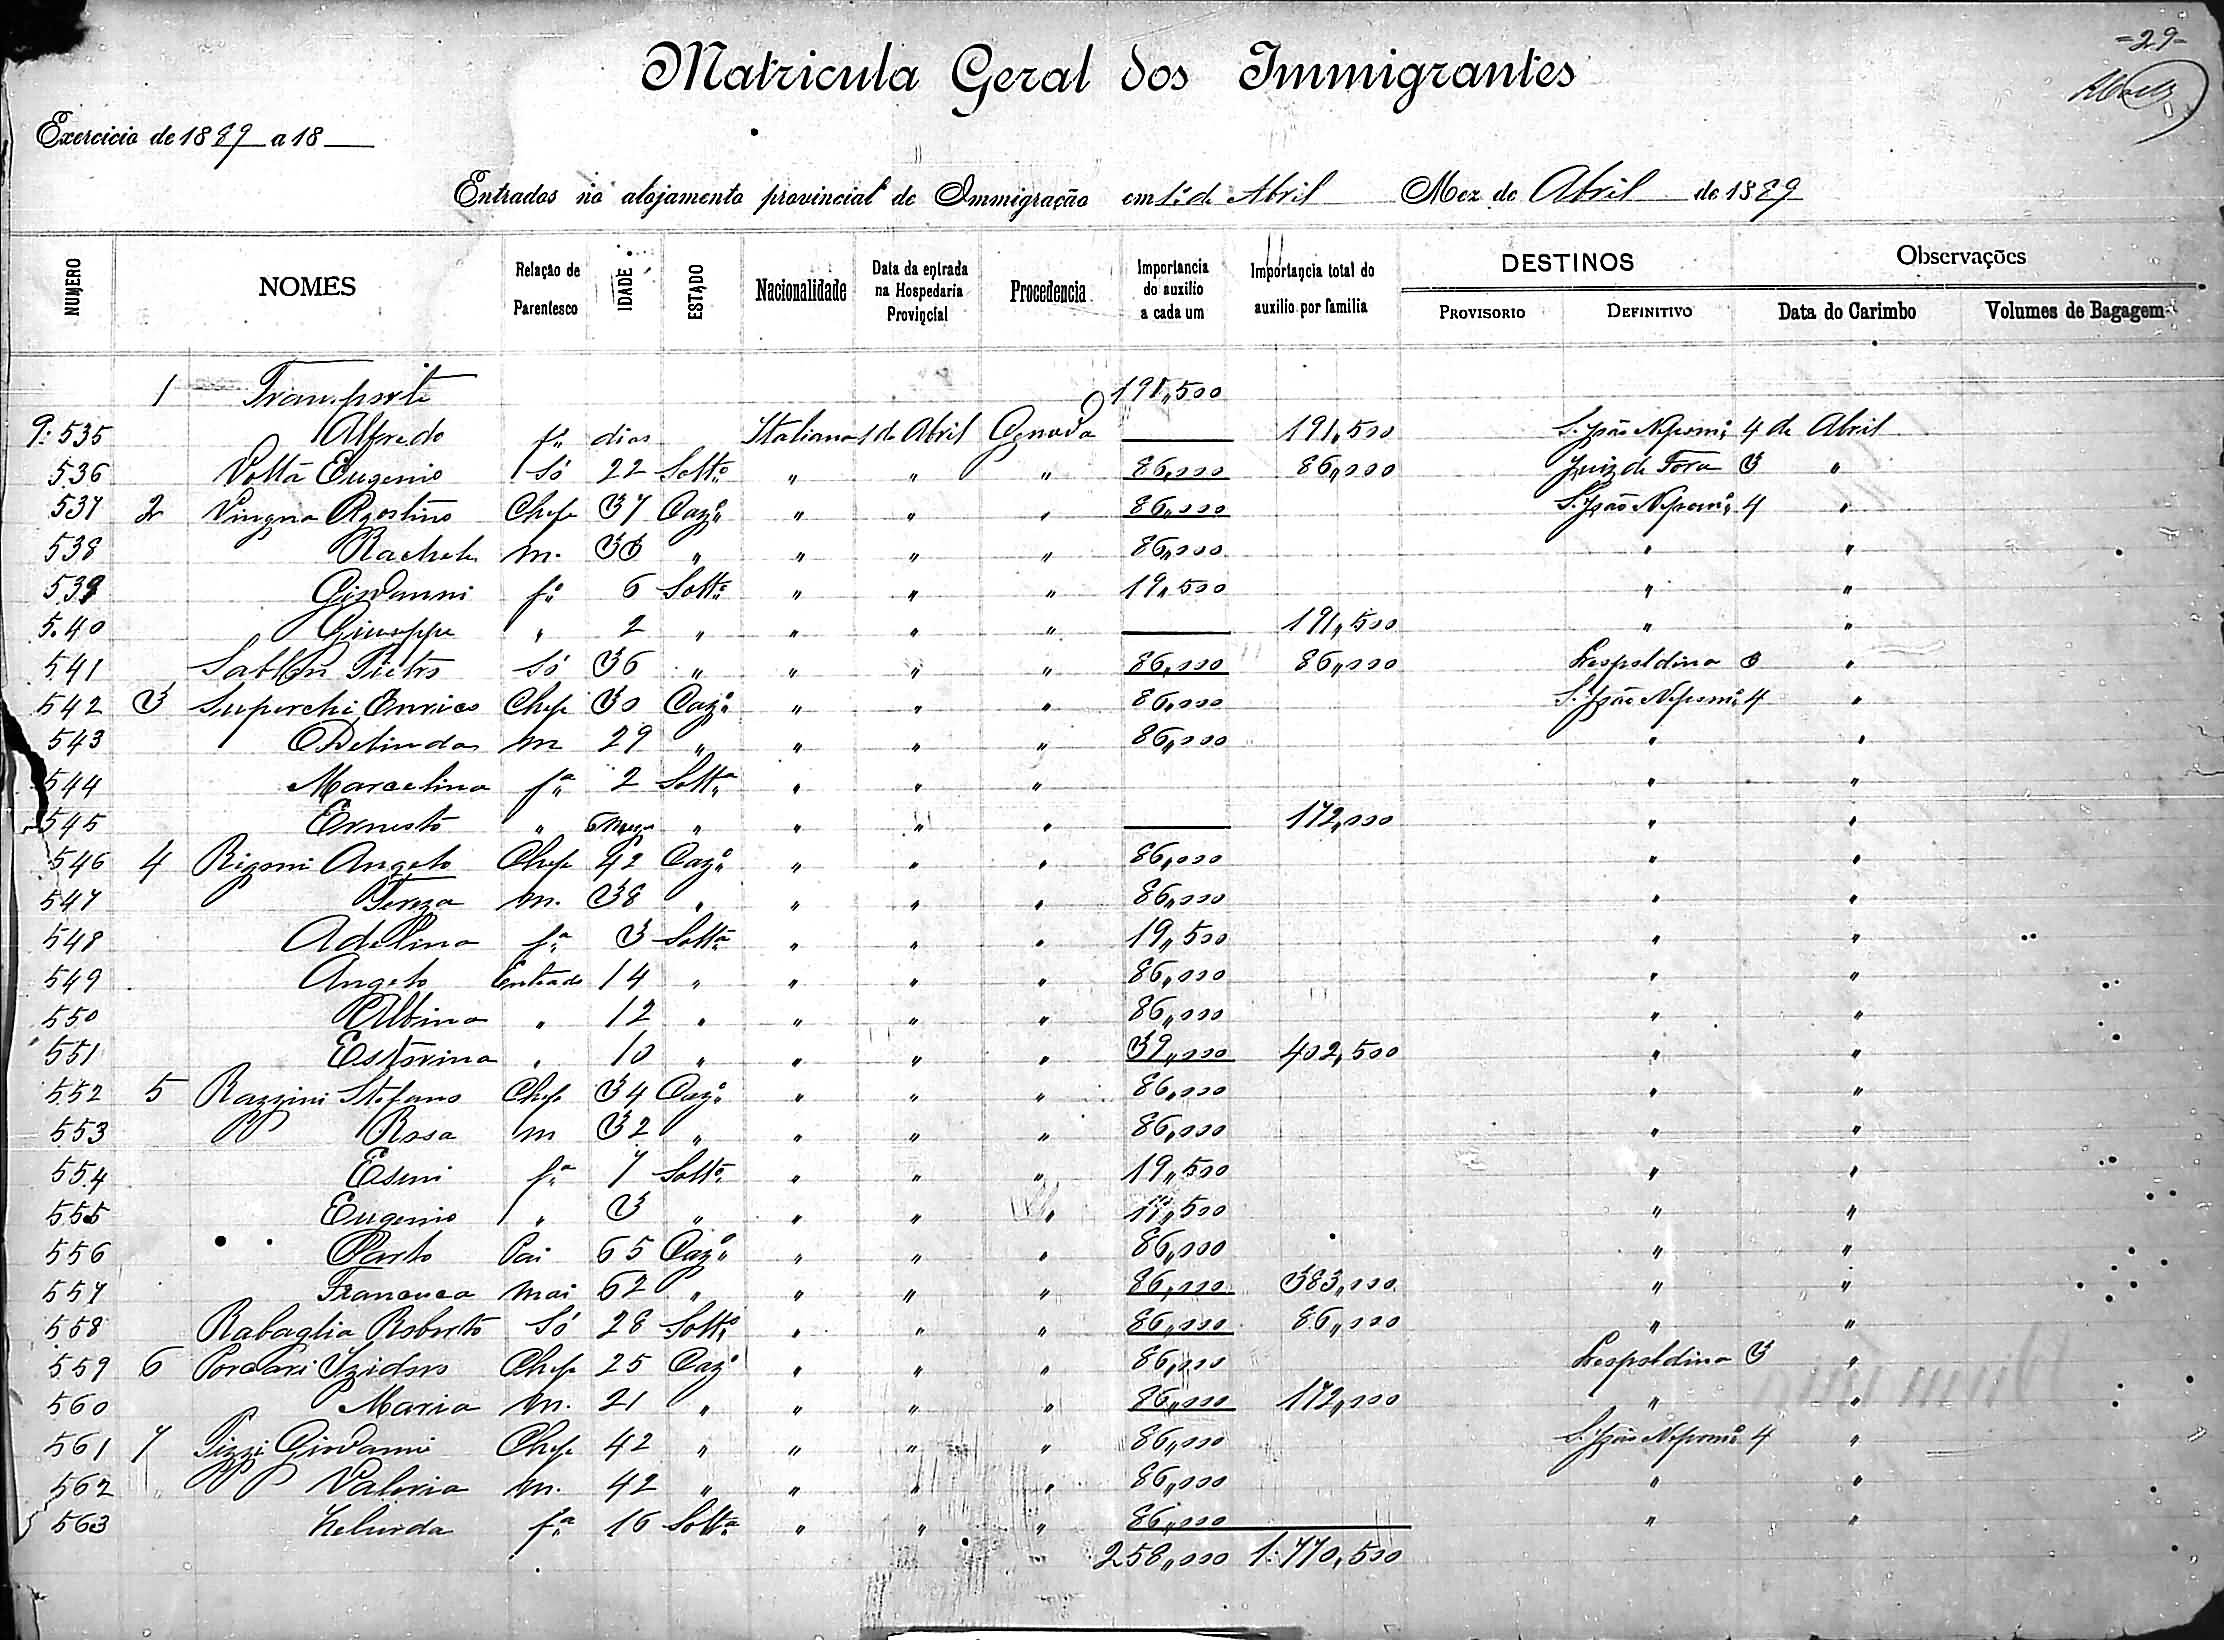 -29-
Matricula Geral dos Immigrantes
Exercicio de 1889 a 18
Entrados no alojamento provincial de Immigração em 1º de Abril Mez de Abril de 1889
NUMERO NOMES Relação de Parentesco IDADE ESTADO Nacionalidade Data da entrada na Hospedaria Provincial Procedencia Importancia do auxilio a cada um Importancia total do auxilio por familia DESTINOS PROVISORIO DEFINITIVO Observações Data do Carimbo Volumes de Bagagem
1 Transporte 191,500
9:535 Alfredo fº dias Italiana 1 de Abril Genova 191,500 S. João Nepomº 4 de Abril
536 Volta Eugenio Só 22 Soltº " " " 86,000 86,000 Juiz de Fora 3 "
537 2 Vingna Agostino Chefe 37 Cazº " " " 86,000 S. João Nepomº 4 "
538 Rachele m. 33 " " " " 86,000 " "
539 Giovanni fº 6 Soltº " " " 19,500 " "
540 Giuseppe " 2 " " " " 191,500 " "
541 Pietro Só 36 " " " " 86,000 86,000 Leopoldina 3 "
542 3 Superchi Enrico Chefe 30 Cazº " " " 86,000 S. João Nepomº 4 "
543 m 29 " " " " 86,000 " "
544 Marcelina fª 2 Soltª " " " " "
545 Ernesto " " " " " 172,000 " "
546 4 Rigoni Angelo Chefe 42 Cazº " " " 86,000 " "
547 Tereza m. 38 " " " " 86,000 " "
548 Adelina fª 3 Soltª " " " 19,500 " "
549 Angelo Enteado 14 " " " " 86,000 " "
550 Albina " 12 " " " " 86,000 " "
551 Estorina " 10 " " " " 39,000 402,500 " "
552 5 Razzini Stefano Chefe 34 Cazº " " " 86,000 " "
553 Rosa m 32 " " " " 86,000 " "
554 fª 7 Soltª " " " 19,500 " "
555 Eugenio " 3 " " " " 19,500 " "
556 Pai 65 Cazº " " " 86,000 " "
557 Francesca mai 62 " " " " 86,000 383,000 " "
558 Rabaglia Roberto Só 28 Soltº " " " 86,000 86,000 " "
559 6 Porcari Izidoro Chefe 25 Cazº " " " 86,000 Leopoldina 3 "
560 Maria m. 21 " " " " 86,000 172,000 " "
561 7 Pizzi Giovanni Chefe 42 " " " " 86,000 S. João Nepomº 4 "
562 Valeria m. 42 " " " " 86,000 " "
563 fª 16 Soltª " " " 86,000 " "
258,000 1:770,500